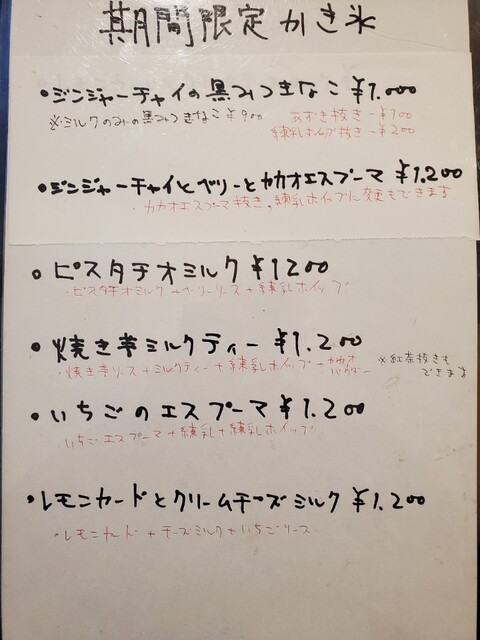 期間限定かき氷
・ジンジャーチャイの黒みつきなこ ¥1.000
※ミルクのみの黒みつきなこ ¥900
あずき抜き -¥100
練乳ホイップ抜き -¥200
・ジンジャーチャイとベリーとカカオエスプーマ ¥1.200
・カカオエスプーマ抜き、練乳ホイップに変更もできます
。ピスタチオミルク ¥1200
・ピスタチオミルク+ベリーソース+練乳ホイップ
・焼き芋ミルクティー ¥1.200
・焼き芋ソース+ミルクティー+練乳ホイップ+カカオパウダー
※紅茶抜きもできます
・いちごのエスプーマ ¥1.200
・いちごエスプーマ+練乳+練乳ホイップ
・レモンカードとクリームチーズミルク ¥1.200
・レモンカード+チーズミルク+いちごソース